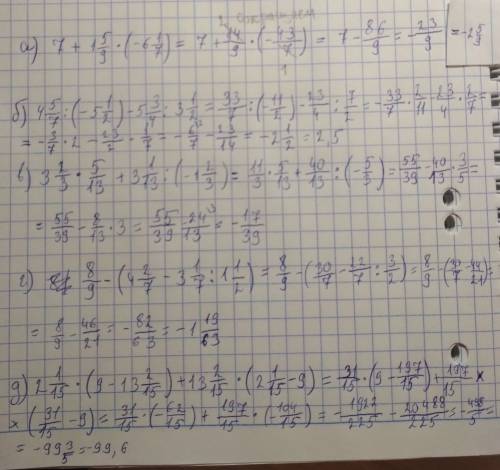 сокращаем
а) 7 + 1 5/9 · (-6 1/7) = 7 + 14/9 · (-43/7) = 7 - 86/9 = -23/9 = -2 5/9
б) 4 5/7 : (-5 1/2) - 5 3/4 : 3 1/2 = 33/7 : (-11/2) - 23/4 : 7/2 = -33/7 · 2/11 - 23/4 · 2/7 =
= -3/7 · 2 - 23/2 · 1/7 = -6/7 - 23/14 = -2 1/2 = 2,5
в) 3 2/3 · 5/13 + 3 1/13 : (-1 2/3) = 11/3 · 5/13 + 40/13 : (-5/3) = 55/39 - 40/13 · 3/5 =
= 55/39 - 8/13 · 3 = 55/39 - 24/13 = -17/39
г) 8/9 - (4 2/7 - 3 1/7 : 1 1/2) = 8/9 - (30/7 - 22/7 : 3/2) = 8/9 - (30/7 - 44/21) =
= 8/9 - 46/21 = -82/63 = -1 19/63
д) 2 1/15 · (9 - 13 2/15) + 13 2/15 · (2 1/15 - 9) = 31/15 · (9 - 197/15) + 197/15 ×
× (31/15 - 9) = 31/15 · (-62/15) + 197/15 · (-104/15) = -1922/225 - 20488/225 = -498/5 =
= -99 3/5 = -99,6